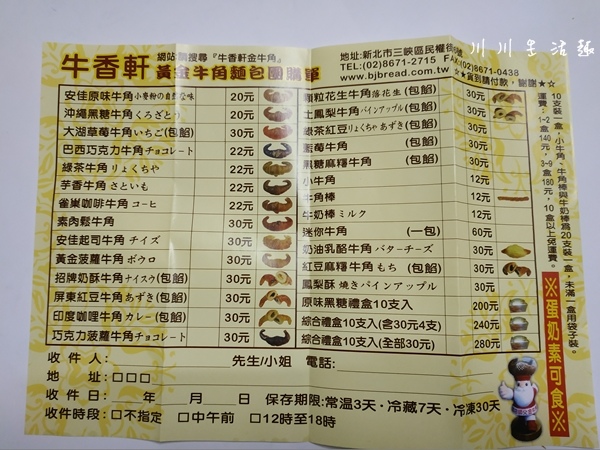 川川生活趣
牛香軒
網站請搜尋『牛香軒金牛角』
黃金牛角麵包團購單
地址:新北市三峽區民權街
TEL:(02)8671-2715 FAX:(02)8671-0438
www.bjbread.com.tw ★★貨到請付款,謝謝★★
安佳原味牛角小麥粉の自然原味 20元
沖繩黑糖牛角くろざとう 20元
大湖草莓牛角いちご(包餡) 30元
巴西巧克力牛角チョコレート 22元
綠茶牛角りょくちゃ 22元
芋香牛角さといも 22元
雀巢咖啡牛角コーヒ 22元
素肉鬆牛角 30元
安佳起司牛角チイズ 30元
黃金菠蘿牛角ボウロ 30元
招牌奶酥牛角ナイスウ(包餡) 30元
屏東紅豆牛角あずき(包餡) 30元
印度咖哩牛角カレー(包餡) 30元
巧克力菠蘿牛角チョコレート 30元
顆粒花生牛角落花生(包餡) 30元
土鳳梨牛角パインアップル(包餡) 30元
綠茶紅豆りょくちゃあずき(包餡) 30元
藍莓牛角 (包餡) 30元
黑糖麻糬牛角 (包餡) 30元
小牛角 12元
牛角棒 12元
牛奶棒ミルク 12元
迷你牛角 (一包) 60元
奶油乳酪牛角バターチーズ 30元
紅豆麻糬牛角もち (包餡) 30元
鳳梨酥 焼きパインアップル 30元
原味黑糖禮盒10支入 200元
綜合禮盒10支入(含30元4支) 240元
綜合禮盒10支入(全部30元) 280元
10支裝一盒,小牛角、牛角棒與牛奶棒為20支裝一盒,未滿一盒用袋子裝。
運費:1~2盒140元,3~9盒180元,10盒以上免運費。
※蛋奶素可食※
收件人: 先生/小姐 電話:
地 址:□□□
收件日: 年 月 日 保存期限:常溫3天、冷藏7天、冷凍30天
收件時段:□不指定 □中午前 □12時至18時